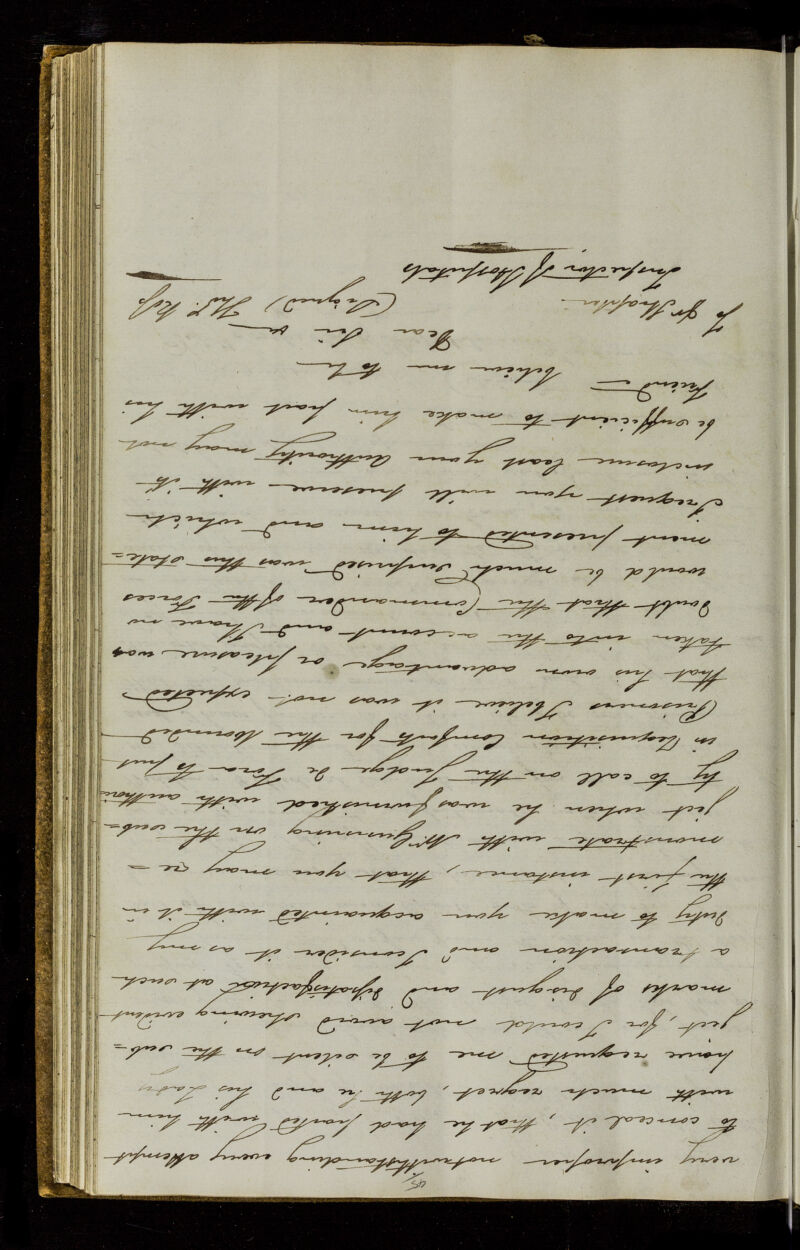 very improper notwithstanding every attempt
to conceal it, that he had parted with him
with much regret, both he and his Lady
have requested me to be silent on the sub=
ject, for I could not avoid shewing evident
marks of disgust and dissatisfaction at such
a transaction and I consider it as my
duty to make you acquainted with it in
the first instance, that you may re=
monstrate with Mr Gunning on the sub=
ject when he was furnished with authori
ty to call on the Judge de Fora to put
in requisition Comforts for the Wounded
Prisoners I believe it was not expected
that his own advantage or pleasure was
taken into the account and I have no
doubt that the Commander of the Forces
would be much surprised was this state=
ment presented to him and which
I request you will preserve with its
inclosure least your authority may not
be sufficient to make him part with his
friend —
believe me to be
Dear Sir &c
(Signed) Thos. Kyss
To Dr
Inspector of Hospitals